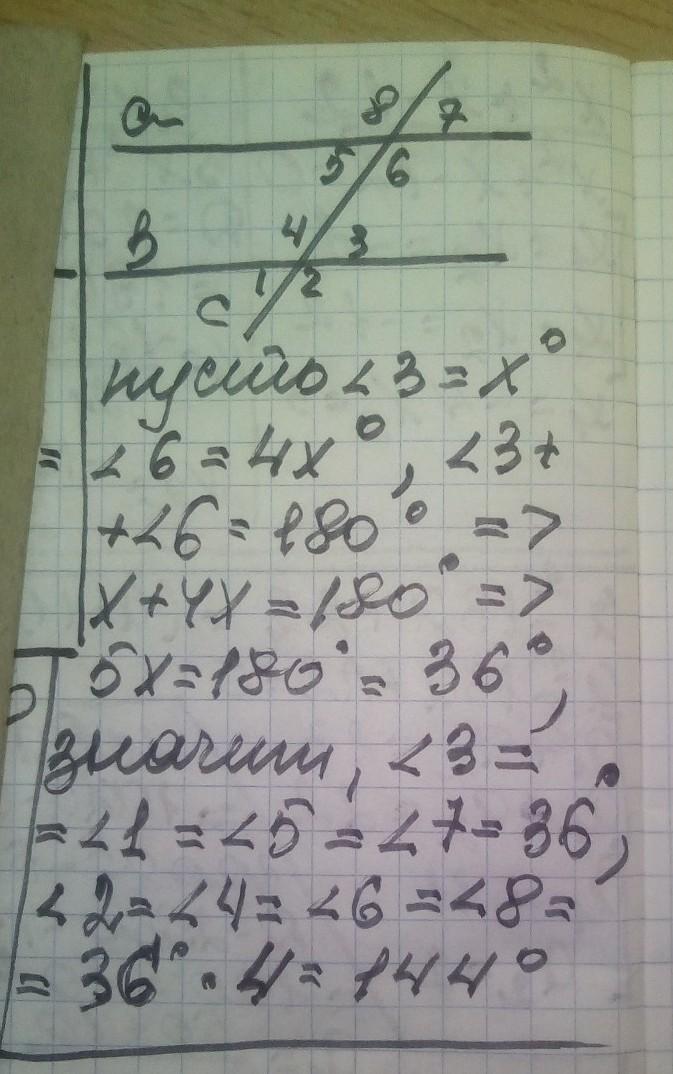 a
8 7
5 6
в
4 3
1 2
c
пусть <3 = x°
= <6 = 4x°, <3+
+<6 = 180° =>
x+4x = 180° =>
5x = 180° = 36°,
значит, <3 =
= <1 = <5 = <7 = 36°,
<2 = <4 = <6 = <8 =
= 36° · 4 = 144°